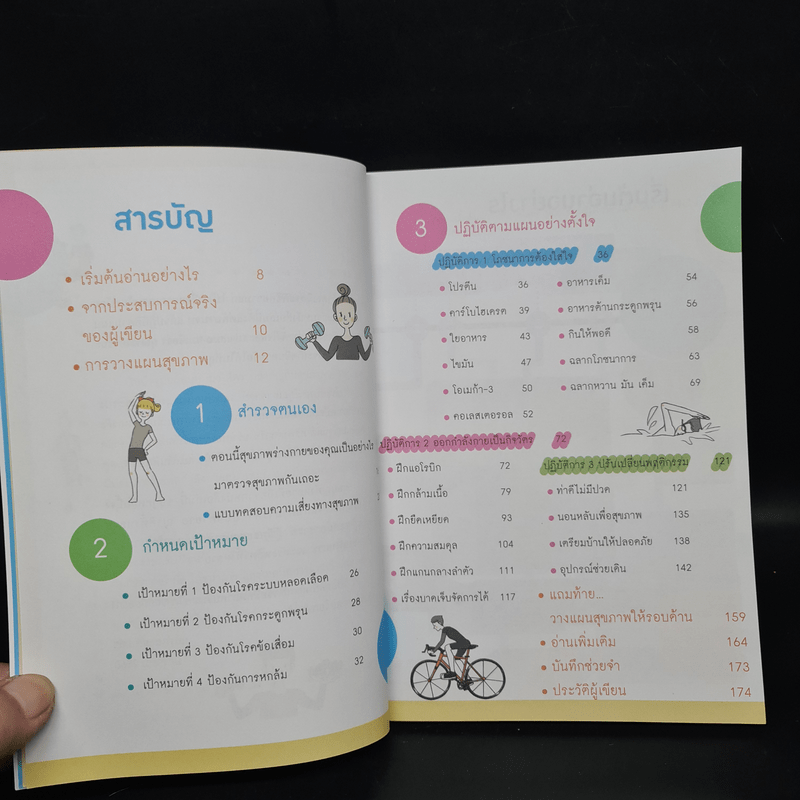 สารบัญ
• เริ่มต้นอ่านอย่างไร 8
• จากประสบการณ์จริง
ของผู้เขียน 10
• การวางแผนสุขภาพ 12
1 สำรวจตนเอง
• ตอนนี้สุขภาพร่างกายของคุณเป็นอย่างไร
มาตรวจสุขภาพกันเถอะ
• แบบทดสอบความเสี่ยงทางสุขภาพ
2 กำหนดเป้าหมาย
• เป้าหมายที่ 1 ป้องกันโรคระบบหลอดเลือด 26
• เป้าหมายที่ 2 ป้องกันโรคกระดูกพรุน 28
• เป้าหมายที่ 3 ป้องกันโรคข้อเสื่อม 30
• เป้าหมายที่ 4 ป้องกันการหกล้ม 32
3 ปฏิบัติตามแผนอย่างตั้งใจ
ปฏิบัติการ 1 โภชนาการต้องใส่ใจ 36
• โปรตีน 36
• คาร์โบไฮเดรต 39
• ใยอาหาร 43
• ไขมัน 47
• โอเมก้า-3 50
• คอเลสเตอรอล 52
• อาหารเค็ม 54
• อาหารต้านกระดูกพรุน 56
• กินให้พอดี 58
• ฉลากโภชนาการ 63
• ฉลากหวาน มัน เค็ม 69
ปฏิบัติการ 2 ออกกำลังกายเป็นกิจวัตร 72
• ฝึกแอโรบิก 72
• ฝึกกล้ามเนื้อ 79
• ฝึกยืดเหยียด 93
• ฝึกความสมดุล 104
• ฝึกแกนกลางลำตัว 111
• เรื่องบาดเจ็บจัดการได้ 117
ปฏิบัติการ 3 ปรับเปลี่ยนพฤติกรรม 121
• ท่าดีไม่มีปวด 121
• นอนหลับเพื่อสุขภาพ 135
• เตรียมบ้านให้ปลอดภัย 138
• อุปกรณ์ช่วยเดิน 142
• แถมท้าย...
วางแผนสุขภาพให้รอบด้าน 159
• อ่านเพิ่มเติม 164
• บันทึกช่วยจำ 173
• ประวัติผู้เขียน 174